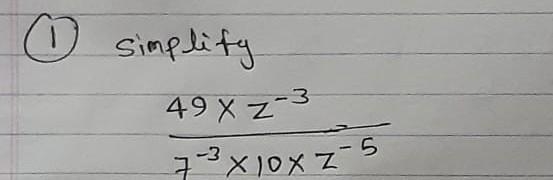 ① simplify
49 × z⁻³
7⁻³ × 10 × z⁻⁵